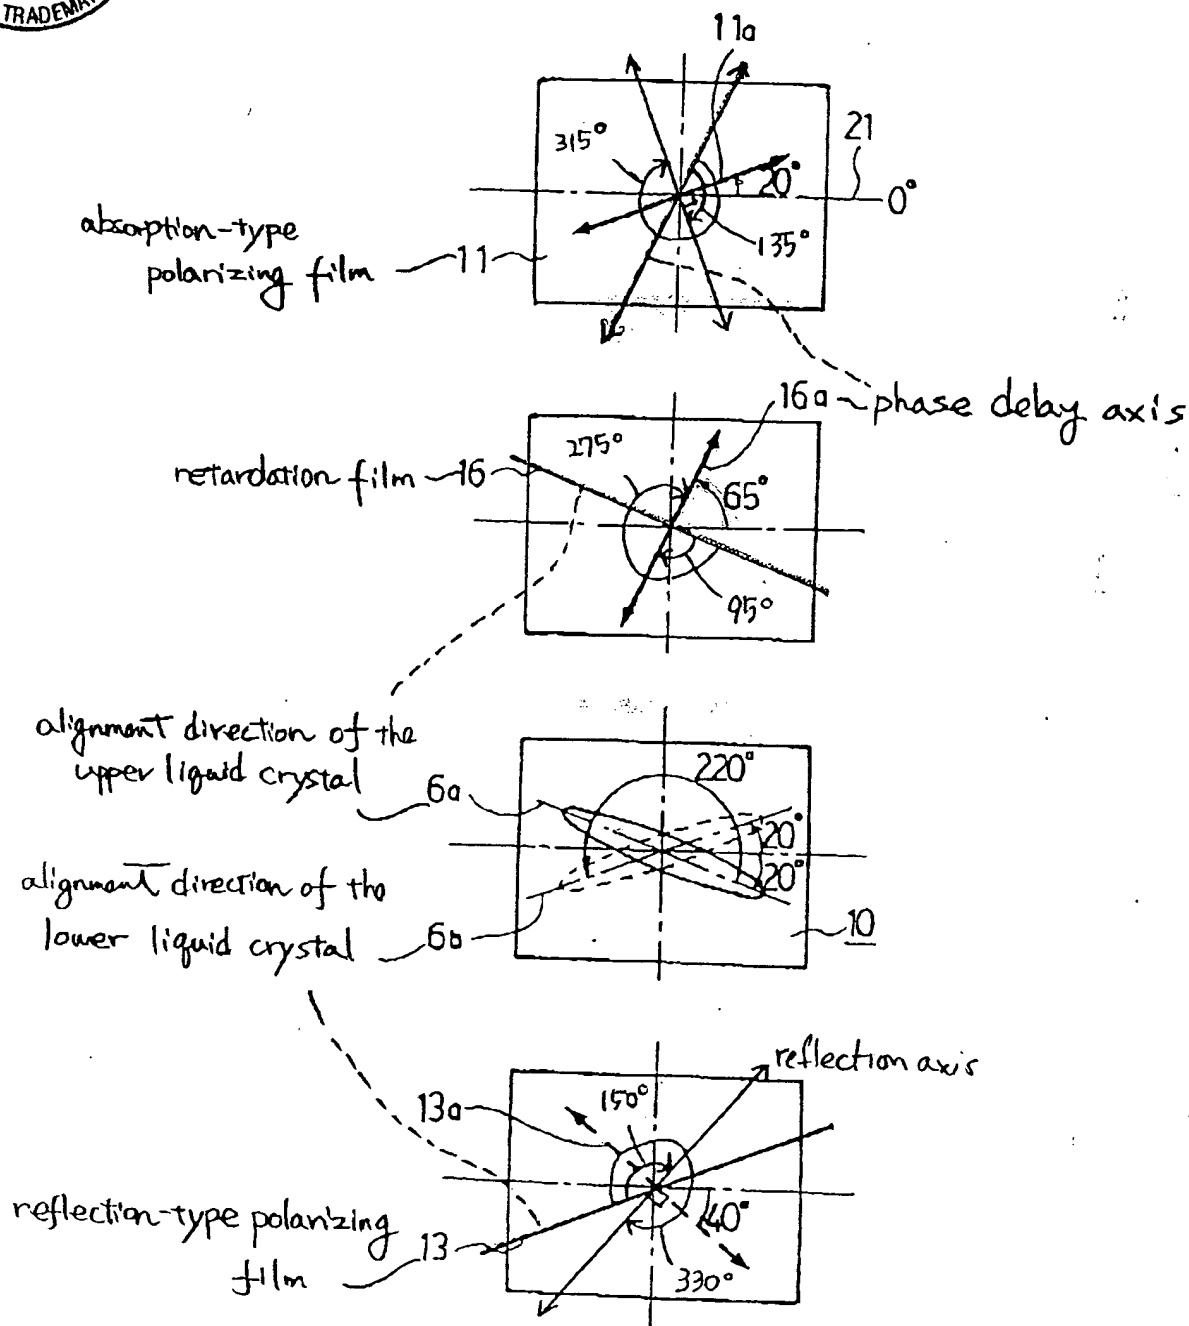 TRADEMA
11a
315°
21
20°
0°
absorption-type
polarizing film
11
135°
16a
phase delay axis
275°
retardation film
16
65°
95°
alignment direction of the
upper liquid crystal
6a
220°
20°
20°
alignment direction of the
lower liquid crystal
6b
10
reflection axis
13a
150°
reflection-type polarizing
film
13
40°
330°